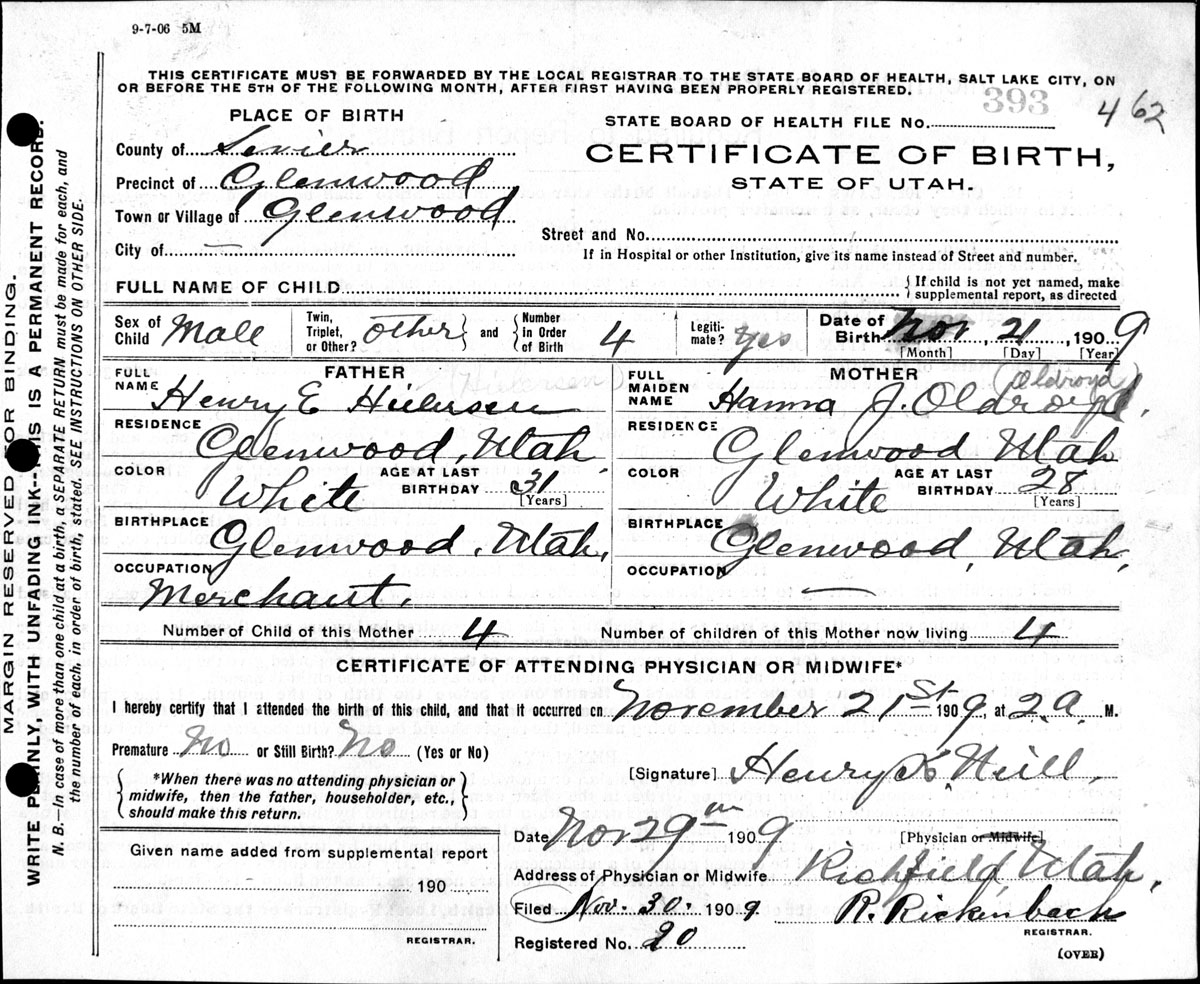 9-7-06 5M
THIS CERTIFICATE MUST BE FORWARDED BY THE LOCAL REGISTRAR TO THE STATE BOARD OF HEALTH, SALT LAKE CITY, ON
OR BEFORE THE 5TH OF THE FOLLOWING MONTH, AFTER FIRST HAVING BEEN PROPERLY REGISTERED.
PLACE OF BIRTH
STATE BOARD OF HEALTH FILE No. 393 462
County of Sevier
CERTIFICATE OF BIRTH,
STATE OF UTAH.
Precinct of Glenwood
Town or Village of Glenwood
Street and No.
City of —
If in Hospital or other Institution, give its name instead of Street and number.
FULL NAME OF CHILD
{If child is not yet named, make
supplemental report, as directed
Sex of Child Male
Twin, Triplet, or Other? other} and {Number in Order of Birth 4
Legiti- mate? Yes
Date of Birth Nov, 21, 1909
[Month] [Day] [Year]
FATHER
MOTHER (Oldroyd)
FULL NAME Henry E
FULL MAIDEN NAME Hanna J. Oldroyd.
RESIDENCE Glenwood, Utah
RESIDENCE Glenwood Utah
COLOR White AGE AT LAST BIRTHDAY 31 [Years]
COLOR White AGE AT LAST BIRTHDAY 28 [Years]
BIRTHPLACE Glenwood, Utah,
BIRTHPLACE Glenwood, Utah,
OCCUPATION Merchant.
OCCUPATION —
Number of Child of this Mother 4 Number of children of this Mother now living 4
CERTIFICATE OF ATTENDING PHYSICIAN OR MIDWIFE*
I hereby certify that I attended the birth of this child, and that it occurred on November 21st 1909, at 2.a. M.
Premature No or Still Birth? No (Yes or No)
{*When there was no attending physician or
midwife, then the father, householder, etc.,
should make this return.}
[Signature] Henry K Neill,
Date Nov 29th 1909 [Physician or Midwife]
Given name added from supplemental report
190
REGISTRAR.
Address of Physician or Midwife Richfield, Utah,
Filed Nov. 30. 1909 R. Rickenbach
REGISTRAR.
Registered No. 20
(OVER)
MARGIN RESERVED FOR BINDING.
WRITE PLAINLY, WITH UNFADING INK--THIS IS A PERMANENT RECORD.
N. B.—In case of more than one child at a birth, a SEPARATE RETURN must be made for each, and
the number of each, in order of birth, stated. SEE INSTRUCTIONS ON OTHER SIDE.